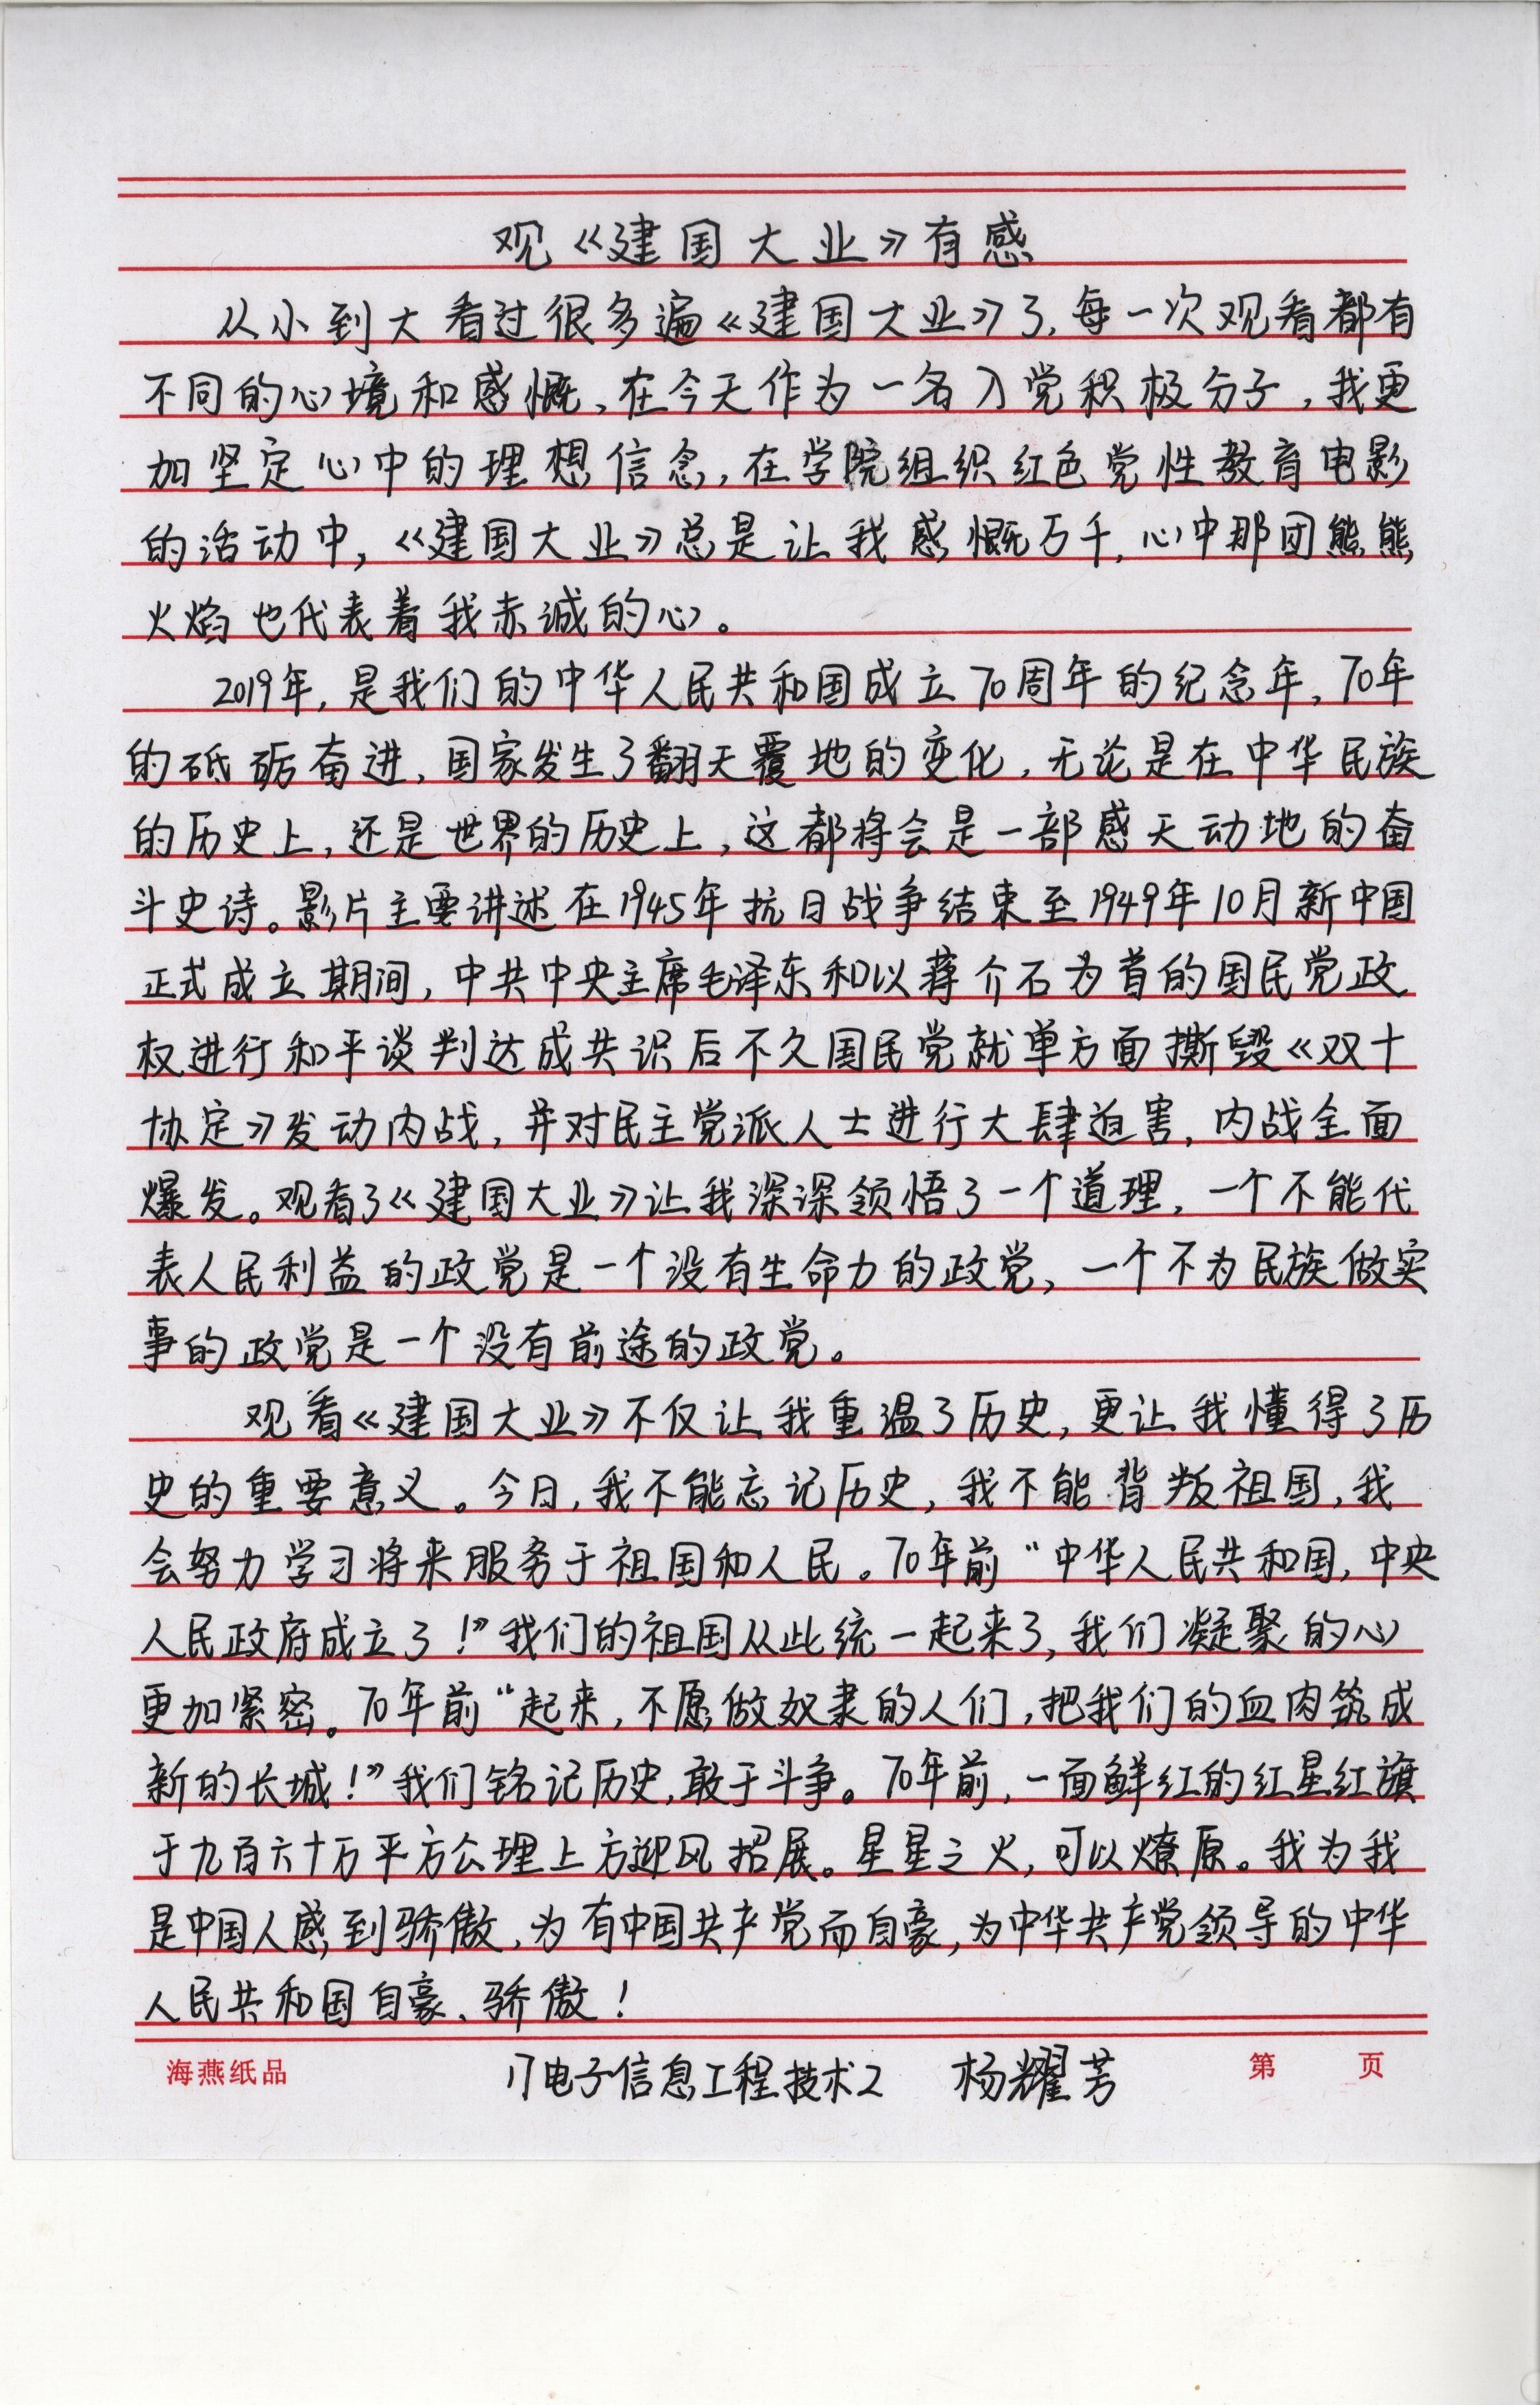 观《建国大业》有感
从小到大看过很多遍《建国大业》了，每一次观看都有
不同的心境和感慨、在今天作为一名入党积极分子，我更
加坚定心中的理想信念，在学院组织红色党性教育电影
的活动中，《建国大业》总是让我感慨万千，心中那团熊熊
火焰也代表着我赤诚的心。
2019年，是我们的中华人民共和国成立70周年的纪念年，70年
的砥砺奋进，国家发生了翻天覆地的变化，无论是在中华民族
的历史上，还是世界的历史上，这都将会是一部感天动地的奋
斗史诗。影片主要讲述在1945年抗日战争结束至1949年10月新中国
正式成立期间，中共中央主席毛泽东和以蒋介石为首的国民党政
权进行和平谈判达成共识后不久国民党就单方面撕毁《双十
协定》发动内战，并对民主党派人士进行大肆迫害，内战全面
爆发。观看了《建国大业》让我深深领悟了一个道理，一个不能代
表人民利益的政党是一个没有生命力的政党，一个不为民族做实
事的政党是一个没有前途的政党。
观看《建国大业》不仅让我重温了历史，更让我懂得了历
史的重要意义。今日，我不能忘记历史，我不能背叛祖国，我
会努力学习将来服务于祖国和人民。70年前“中华人民共和国，中央
人民政府成立了！”我们的祖国从此统一起来了，我们凝聚的心
更加紧密。70年前“起来，不愿做奴隶的人们，把我们的血肉筑成
新的长城！”我们铭记历史，敢于斗争。70年前，一面鲜红的红星红旗
于九百六十万平方公理上方迎风招展。星星之火，可以燎原。我为我
是中国人感到骄傲，为有中国共产党而自豪，为中华共产党领导的中华
人民共和国自豪、骄傲！
17电子信息工程技术2 杨耀芳
海燕纸品 第 页